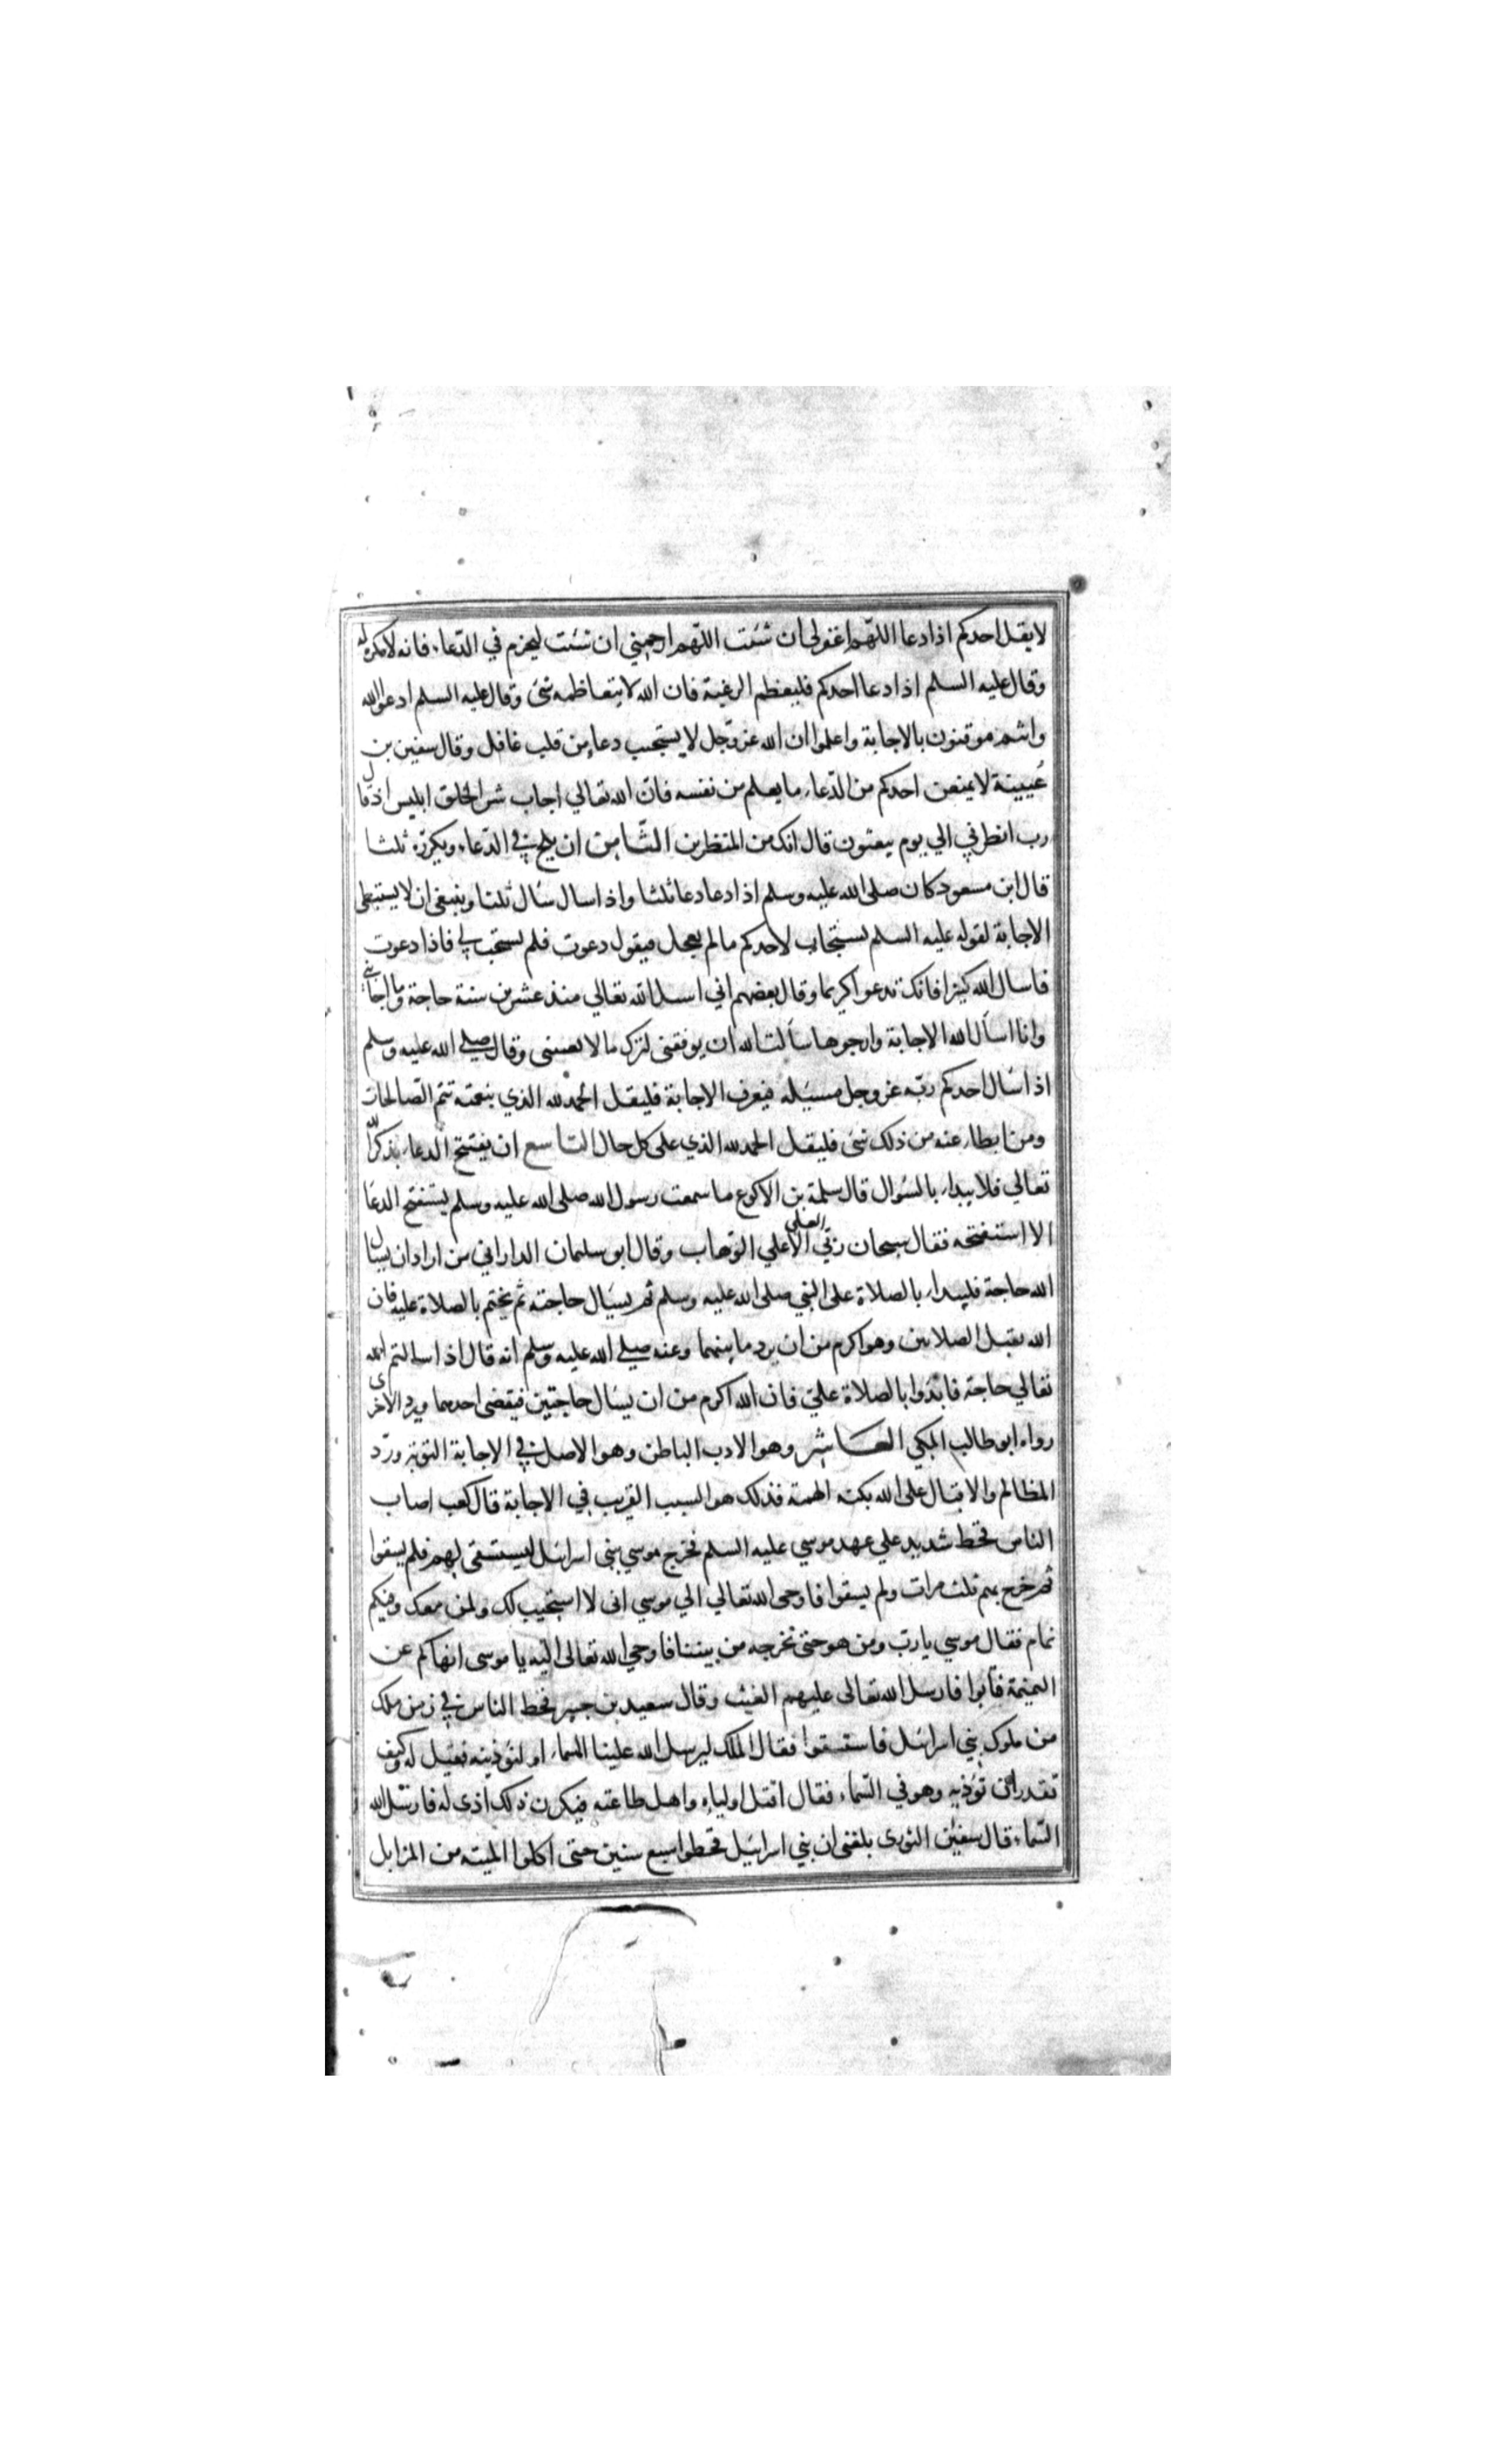 لا يقل احدكم اذا دعا اللهم اغفر لي ان شئت اللهم ارحمني ان شئت ليعزم في الدعاء فانه لا مكره له
وقال عليه السلم اذا دعا احدكم فليعظم الرغبة فان الله لا يتعاظمه شئ وقال عليه السلم ادعوا الله
وانتم موقنون بالاجابة واعلموا ان الله عز وجل لا يستجيب دعاء من قلب غافل وقال سفين بن
عُيينة لا يمنعن احدكم من الدعاء ما يعلم من نفسه فان الله تعالي اجاب شر الخلق ابليس اذ قال
رب انظرني الي يوم يبعثون قال انك من المنظرين الثامن ان يلح في الدعاء ويكرره ثلثا
قال ابن مسعود كان صلى الله عليه وسلم اذا دعا دعا ثلثا واذا سال سال ثلثا وينبغي ان لا يستبطي
الاجابة لقوله عليه السلم يستجاب لاحدكم ما لم يعجل فيقول دعوت فلم يستجب لي فاذا دعوت
فاسال الله كثيرا فانك تدعو كريما وقال بعضهم اني اسل الله تعالي منذ عشرين سنة حاجة وما اجابني
وانا اسأل الله الاجابة وارجوها سألت الله ان يوفقني لترك ما لا يعنيني وقال صلي الله عليه وسلم
اذا سال احدكم ربه عز وجل مسيله فيعرف الاجابة فليقل الحمد لله الذي بنعمته تتم الصالحات
ومن ابطاء عنه من ذلك شئ فليقل الحمد لله الذي على كل حال التاسع ان يفتتح الدعاء بذكر الله
تعالي فلا يبداء بالسؤال قال سلمة بن الاكوع ما سمعت رسول الله صلى الله عليه وسلم يستفتح الدعا
الا استفتحه فقال سبحان ربي العلي الاعلي الوهاب وقال ابو سليمان الداراني من اراد ان يسال
الله حاجة فليبداء بالصلاة على النبي صلى الله عليه وسلم ثم يسال حاجته ثم يختم بالصلاة عليه فان
الله يقبل الصلاتين وهو اكرم من ان يرد ما بينهما وعنه صلي الله عليه وسلم انه قال اذا سالتم الله
تعالي حاجة فابدوا بالصلاة علي فان الله اكرم من ان يسال حاجتين فيقضى احدهما ويرد الاخرى
رواه ابو طالب المكي العاشر وهو الادب الباطن وهو الاصل في الاجابة التوبة ورد
المظالم والاقبال على الله بكنه الهمة فذلك هو السبب القريب في الاجابة قال كعب اصاب
الناس قحط شديد علي عهد موسي عليه السلم فخرج موسي ببني اسرائل ليستسقى لهم فلم يسقوا
ثم خرج بهم ثلث مرات ولم يسقوا فاوحى الله تعالي الي موسي انى لا استجيب لك ولمن معك وفيكم
نمام فقال موسي يا رب ومن هو حتى نخرجه من بيننا فاوحي الله تعالى اليه يا موسى انهاكم عن
النميمة فتابوا فارسل الله تعالى عليهم الغيث وقال سعيد بن جبير قحط الناس في زمن ملك
من ملوك بني اسرائل فاستسقوا فقال الملك ليرسل الله علينا السماء او لنؤذينه فقيل له وكيف
تقدر ان تؤذيه وهو في السماء فقال اقتل اولياءه واهل طاعته فيكون ذلك اذى له فارسل الله
السماء قال سفين الثورى بلغني ان بني اسرائيل قحطوا سبع سنين حتى اكلوا الميته من المزابل